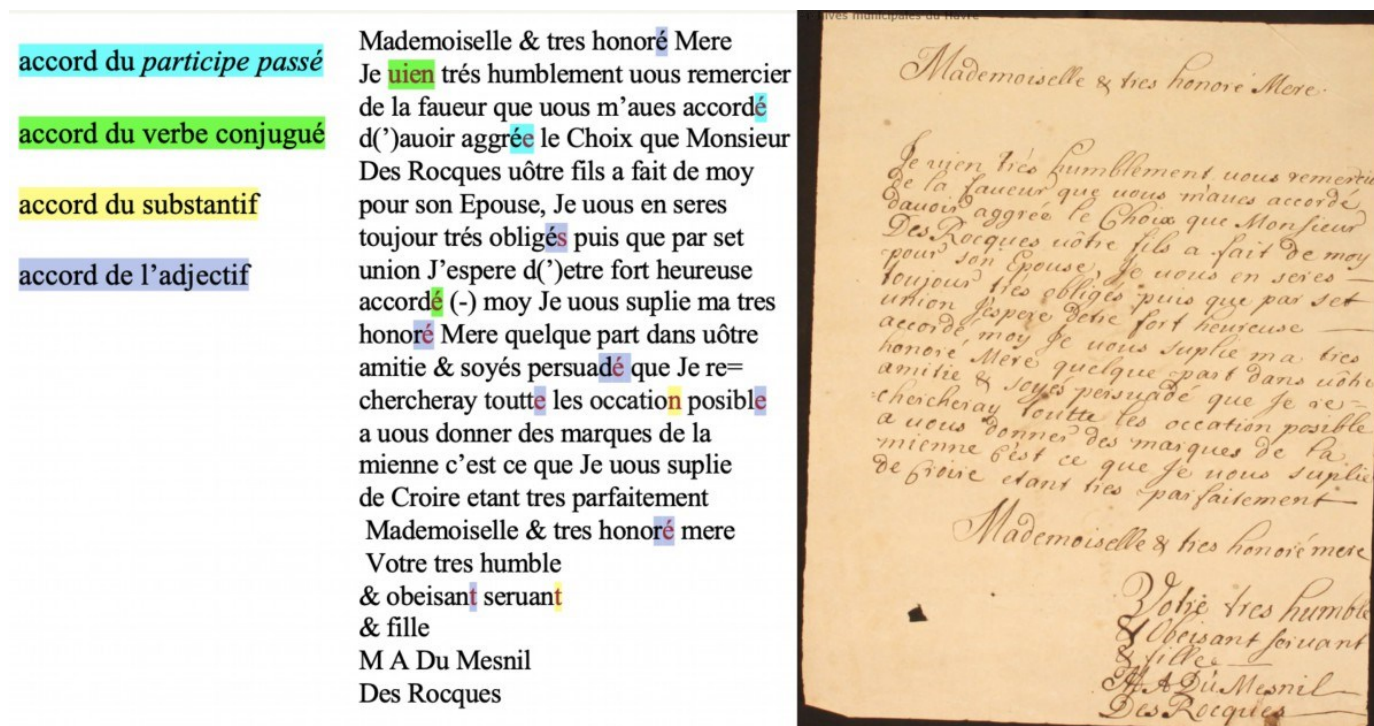 accord du participe passé
accord du verbe conjugué
accord du substantif
accord de l’adjectif
Mademoiselle & tres honoré Mere
Je uien trés humblement uous remercier
de la faueur que uous m’aues accordé
d(’)auoir aggrée le Choix que Monsieur
Des Rocques uôtre fils a fait de moy
pour son Epouse, Je uous en seres
toujour trés obligés puis que par set
union J’espere d(’)etre fort heureuse
accordé (-) moy Je uous suplie ma tres
honoré Mere quelque part dans uôtre
amitie & soyés persuadé que Je re=
chercheray toutte les occation posible
a uous donner des marques de la
mienne c’est ce que Je uous suplie
de Croire etant tres parfaitement
Mademoiselle & tres honoré mere
Votre tres humble
& obeisant seruant
& fille
M A Du Mesnil
Des Rocques
ives municipales du Havre
Mademoiselle & tres honoré Mere
Je uien trés humblement uous remercier
de la faueur que uous m'aues accordé
dauoir aggrée le Choix que Monsieur
Des Rocques uôtre fils a fait de moy
pour son Epouse, Je uous en seres
toujour trés obligés puis que par set
union J'espere detre fort heureuse
accordé, moy Je uous suplie ma tres
honoré Mere quelque part dans uôtre
amitie & soyés persuadé que Je re=
=chercheray toutte les occation posible
a uous donner des marques de la
mienne c'est ce que Je uous suplie
de Croire etant tres parfaitement
Mademoiselle & tres honoré mere
Votre tres humble
& Obeisant seruant
& fille
M A Du Mesnil
Des Rocques